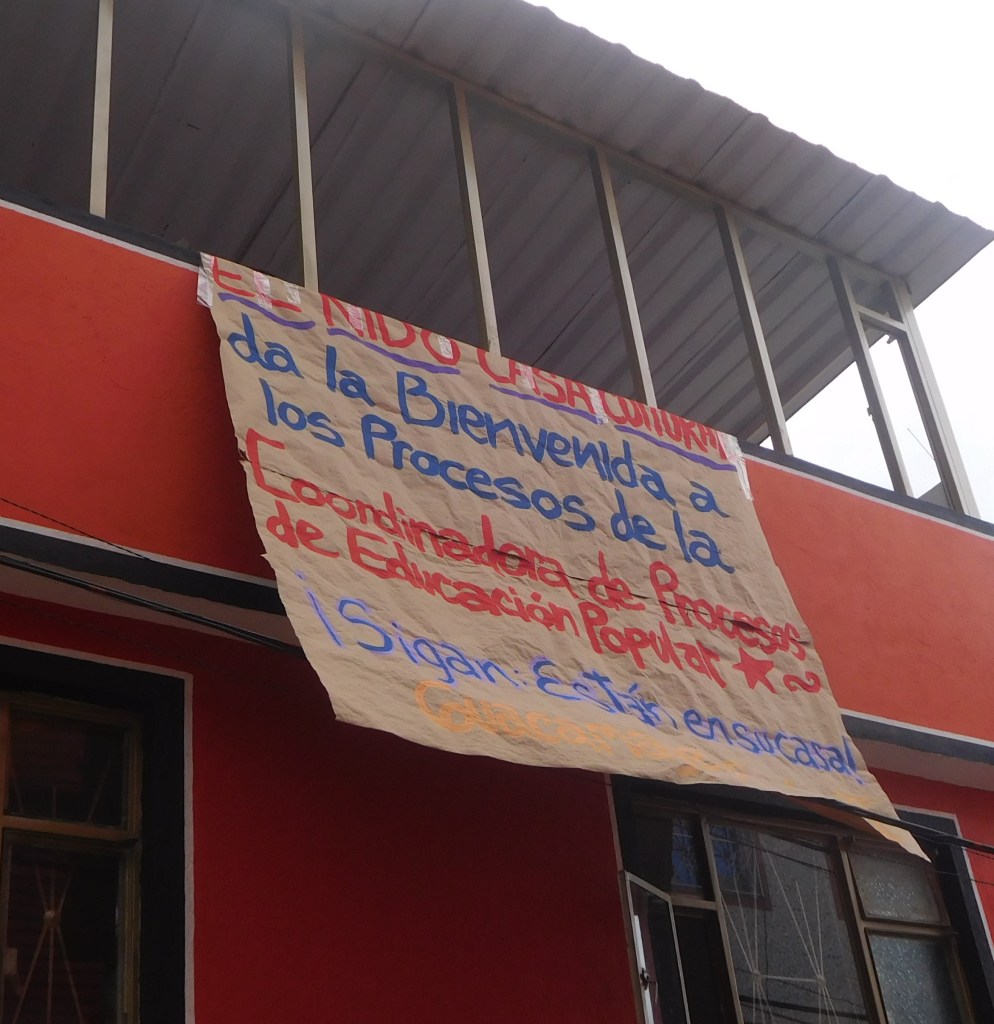 EL NIDO CASA CULTURAL
da la Bienvenida a
los Procesos de la
Coordinadora de Procesos
de Educación Popular
¡Sigan: Están en su casa!